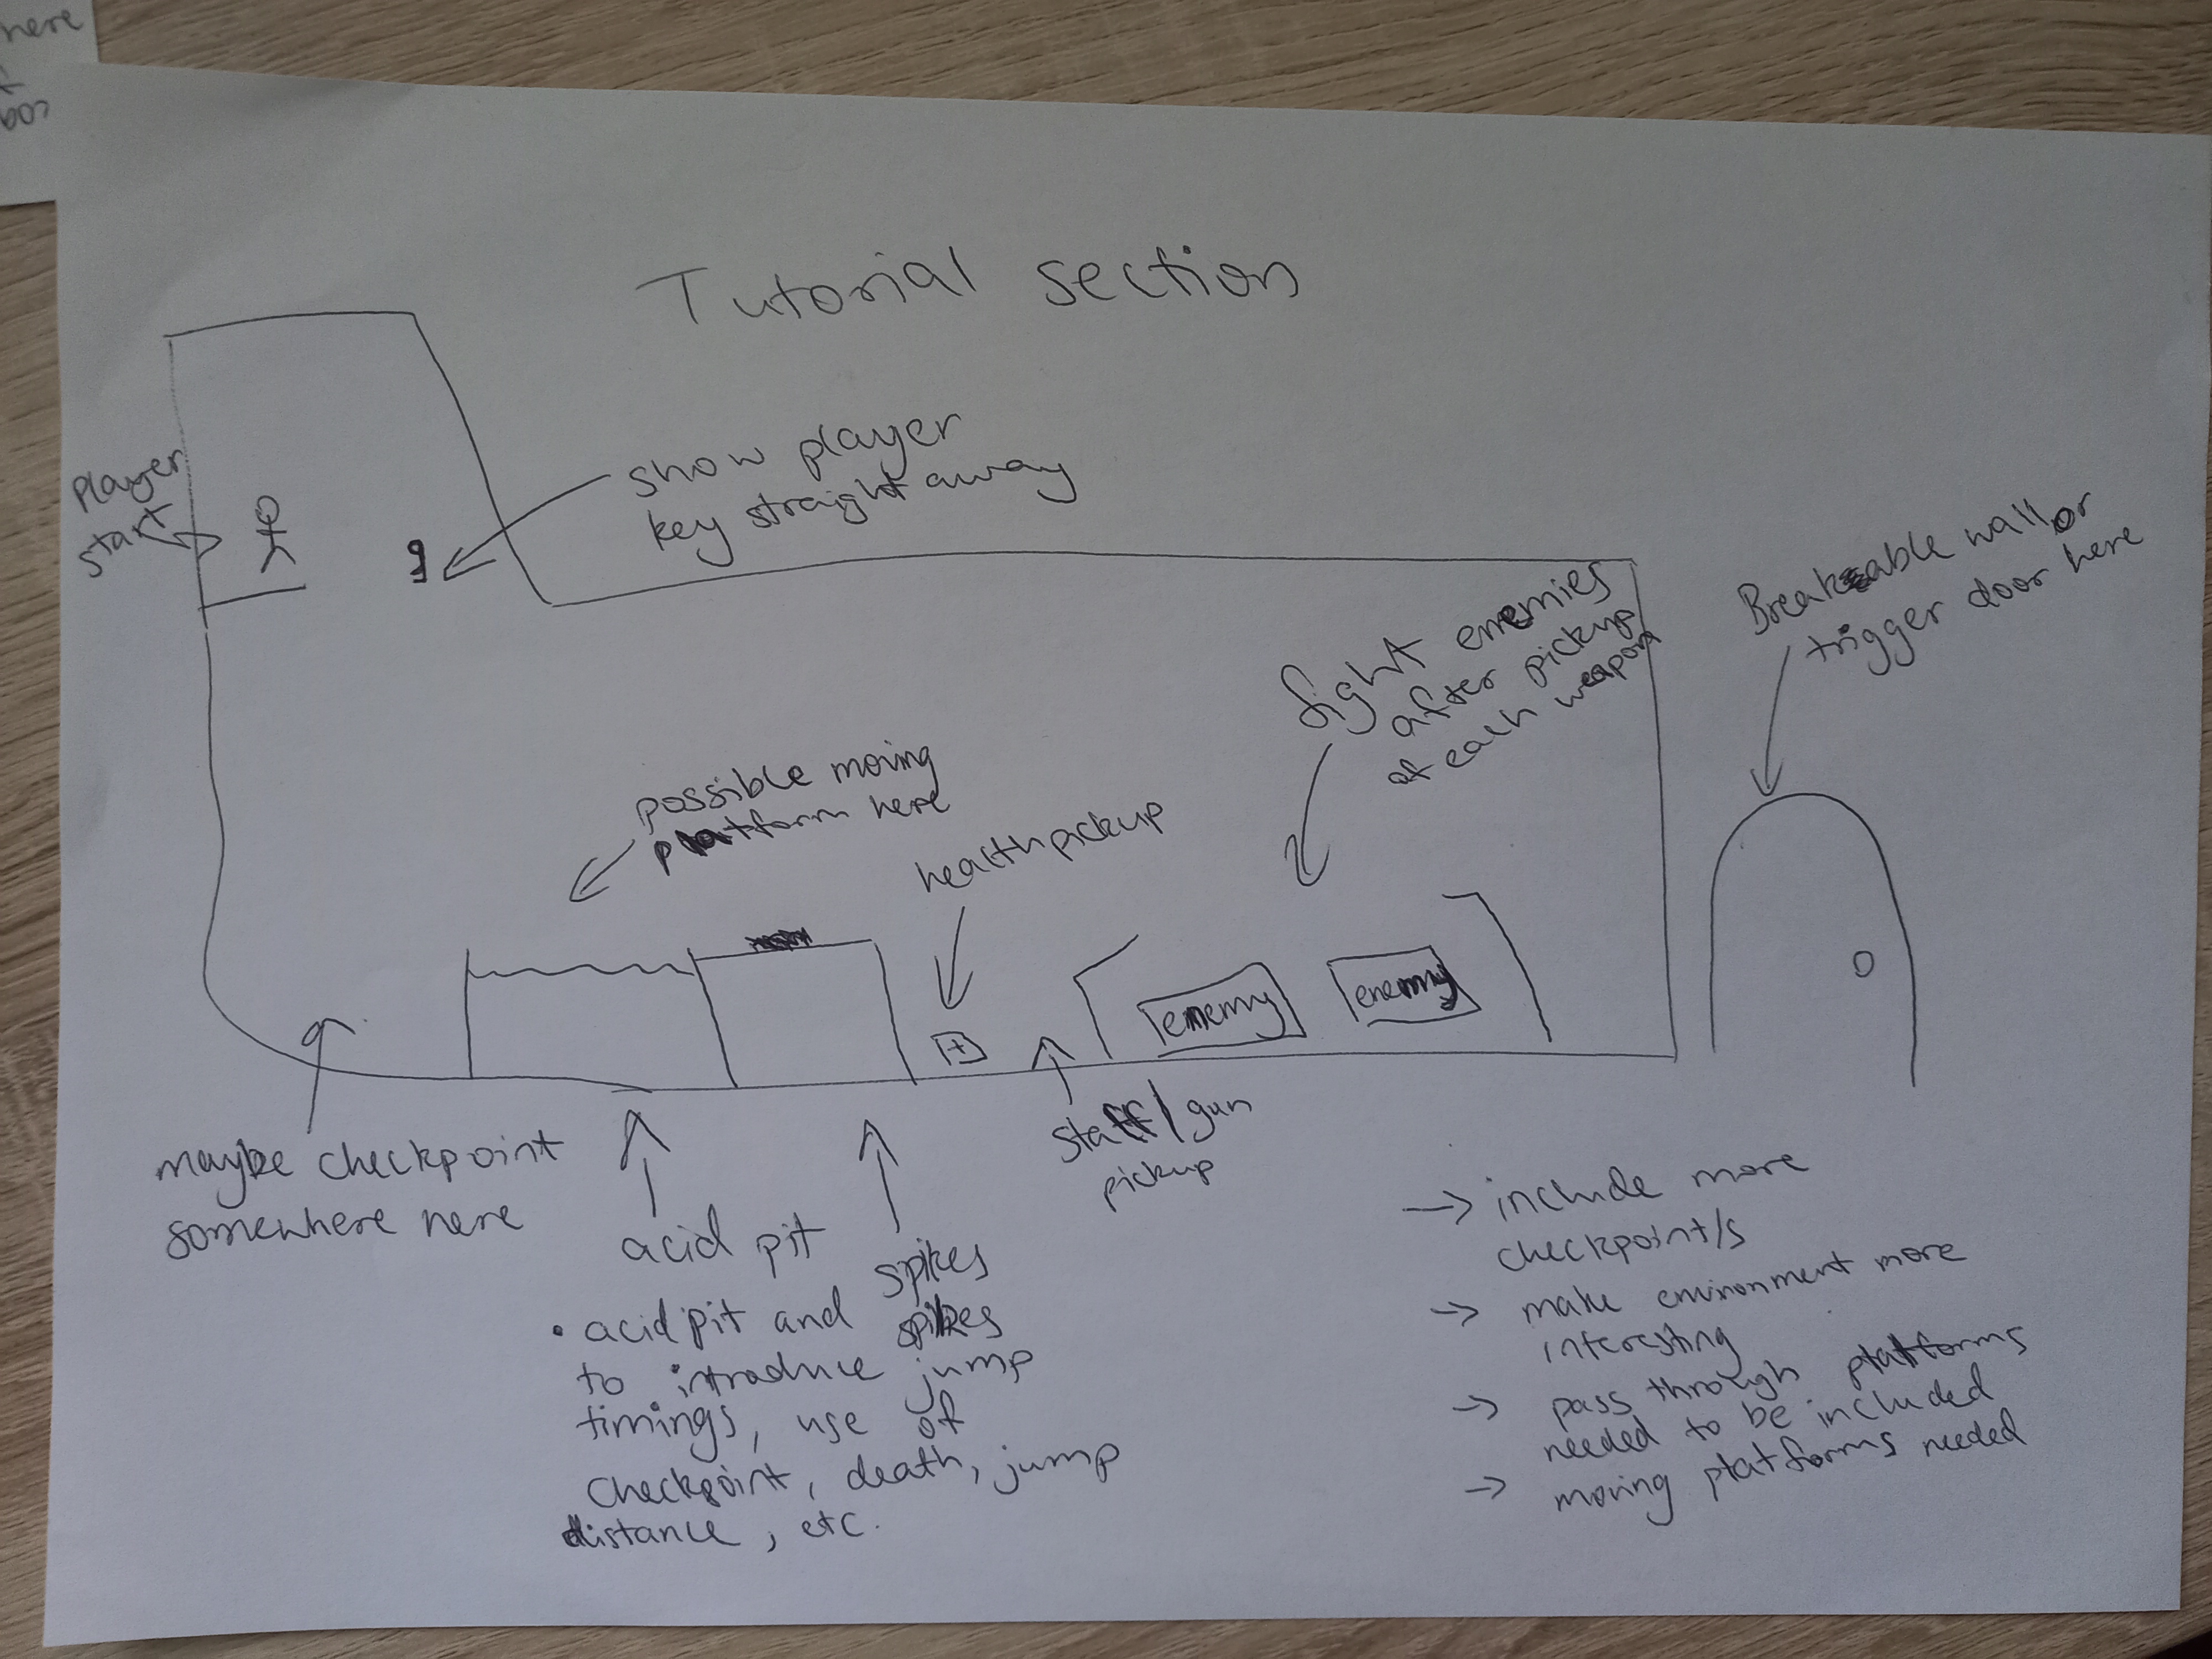 here
Tutorial section
player
start
show player
key straight away
Breakable wall or
trigger door here
fight enemies
after pickup
of each weapon
possible moving
platform here
health pickup
enemy
enemy
+
staff/gun
pickup
maybe checkpoint
somewhere here
acid pit
spikes
• acid pit and spikes
to introduce jump
timings, use of
checkpoint, death, jump
distance, etc.
→ include more
checkpoint/s
→ make environment more
interesting
→ pass through platforms
needed to be included
→ moving platforms needed